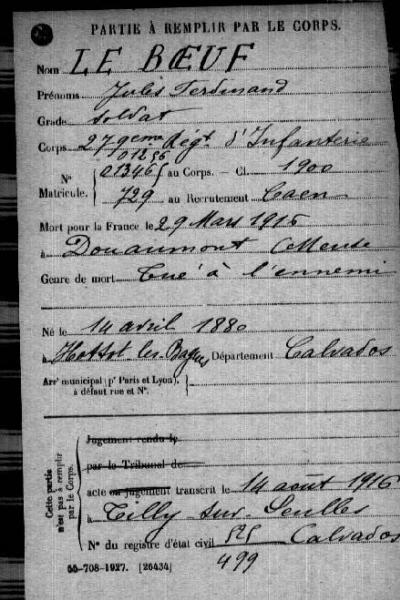 PARTIE À REMPLIR PAR LE CORPS.
Nom LE BŒUF
Prénoms Jules Ferdinand
Grade soldat
Corps 279eme Régt d'Infanterie
01256
N° 013465 au Corps. — Cl. 1900
Matricule. 729 au Recrutement Caen
Mort pour la France le 29 Mars 1916
à Douaumont Meuse
Genre de mort Tué à l'ennemi
Né le 14 avril 1880
à Hottot les Bagues Département Calvados
Arrt municipal (pr Paris et Lyon),
à défaut rue et N°.
Cette partie
n'est pas à remplir
par le Corps.
Jugement rendu le
par le Tribunal de
acte ou jugement transcrit le 14 août 1916
à Tilly sur Seulles
N° du registre d'état civil Calvados
499
55-708-1927. [26434]